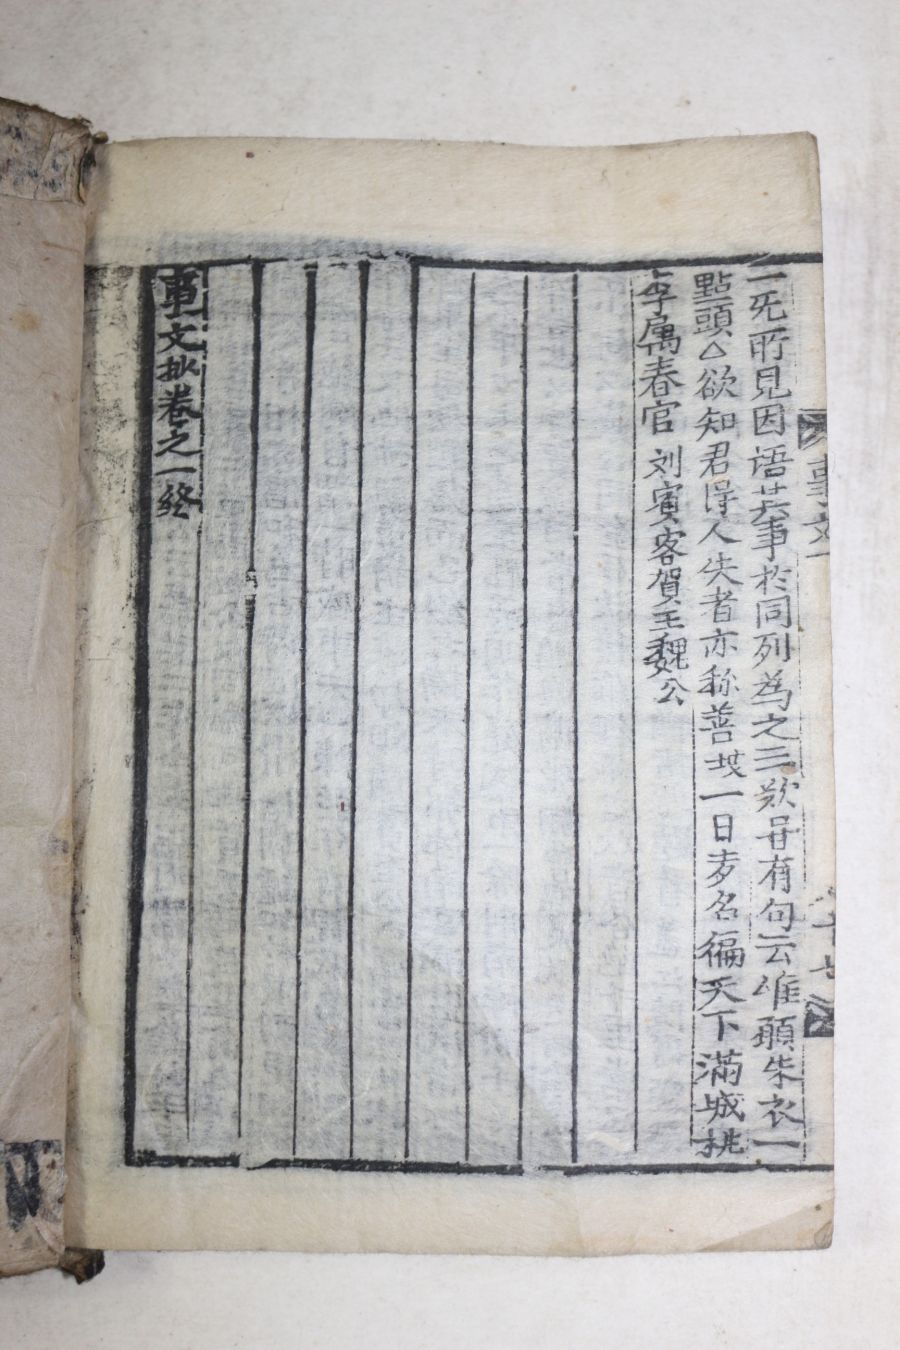 一旡所見因语其事於同列為之三歎甞有句云惟願朱衣一
點頭△欲知君得人失者亦称善一日声名徧天下滿城桃
李属春官 刘賓客賀王魏公
事文抄卷之一終
事文
十七